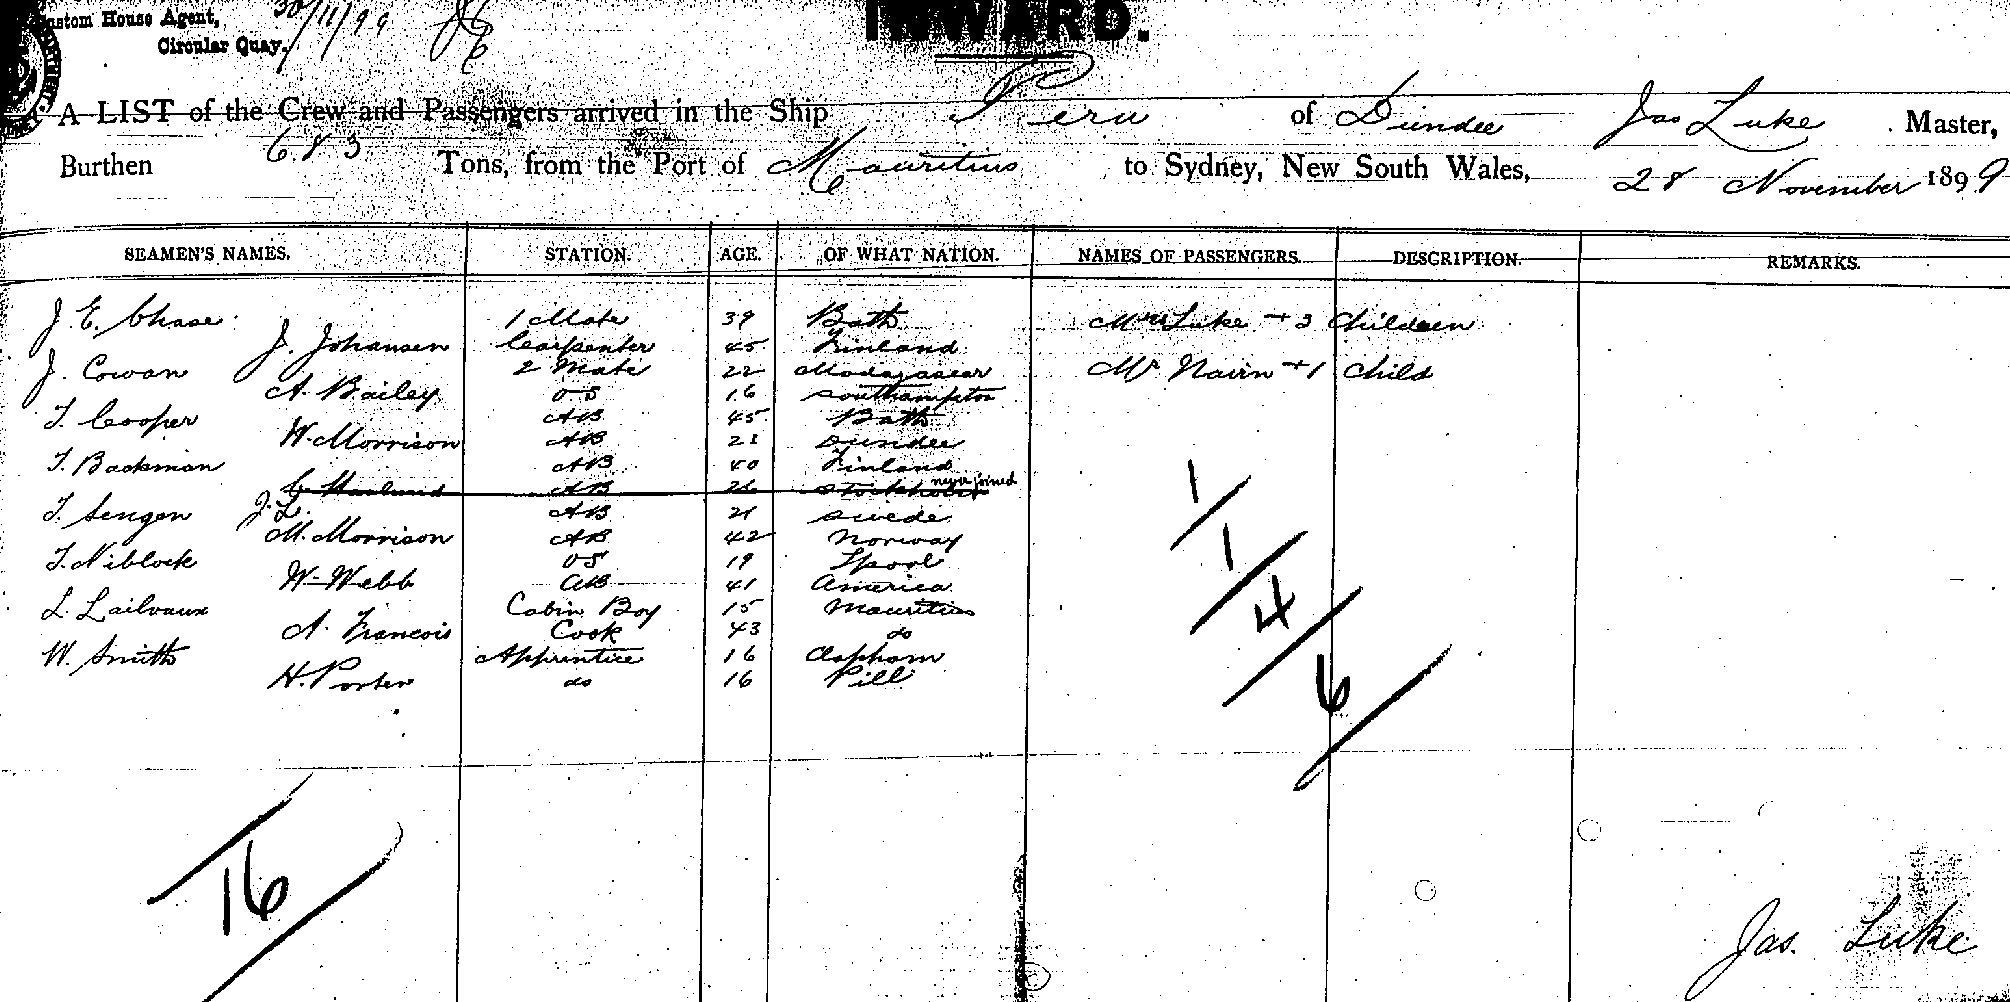 Custom House Agent,
Circular Quay.
30/11/99
INWARD.
A LIST of the Crew and Passengers arrived in the Ship Peru of Dundee Jas Luke Master,
Burthen 683 Tons, from the Port of Mauritius to Sydney, New South Wales, 28 November 1899
SEAMEN'S NAMES. STATION. AGE. OF WHAT NATION. NAMES OF PASSENGERS. DESCRIPTION. REMARKS.
J. E. Chase 1 Mate 39 Bath Mrs Luke + 3 Children
J. Johansen Carpenter 45 Finland
J. Cowan 2 Mate 22 Madagascar Mr Nairn + 1 Child
A. Bailey OS 16 Southampton
T. Cooper AB 45 Bath
W. Morrison AB 21 Dundee
T. Backman AB 40 Finland
AB 26 Stockholm never joined
J. L.
T. Sengen AB 21 Swede
M. Morrison AB 42 Norway
T. Niblock OS 19 Lpool
W. Webb AB 41 America
L. Lailvaux Cabin Boy 15 Mauritius
A. Francois Cook 43 do
W. Smith Apprentice 16 Clapham
H. Porter do 16 Pill
1/1/4/6
16
Jas. Luke